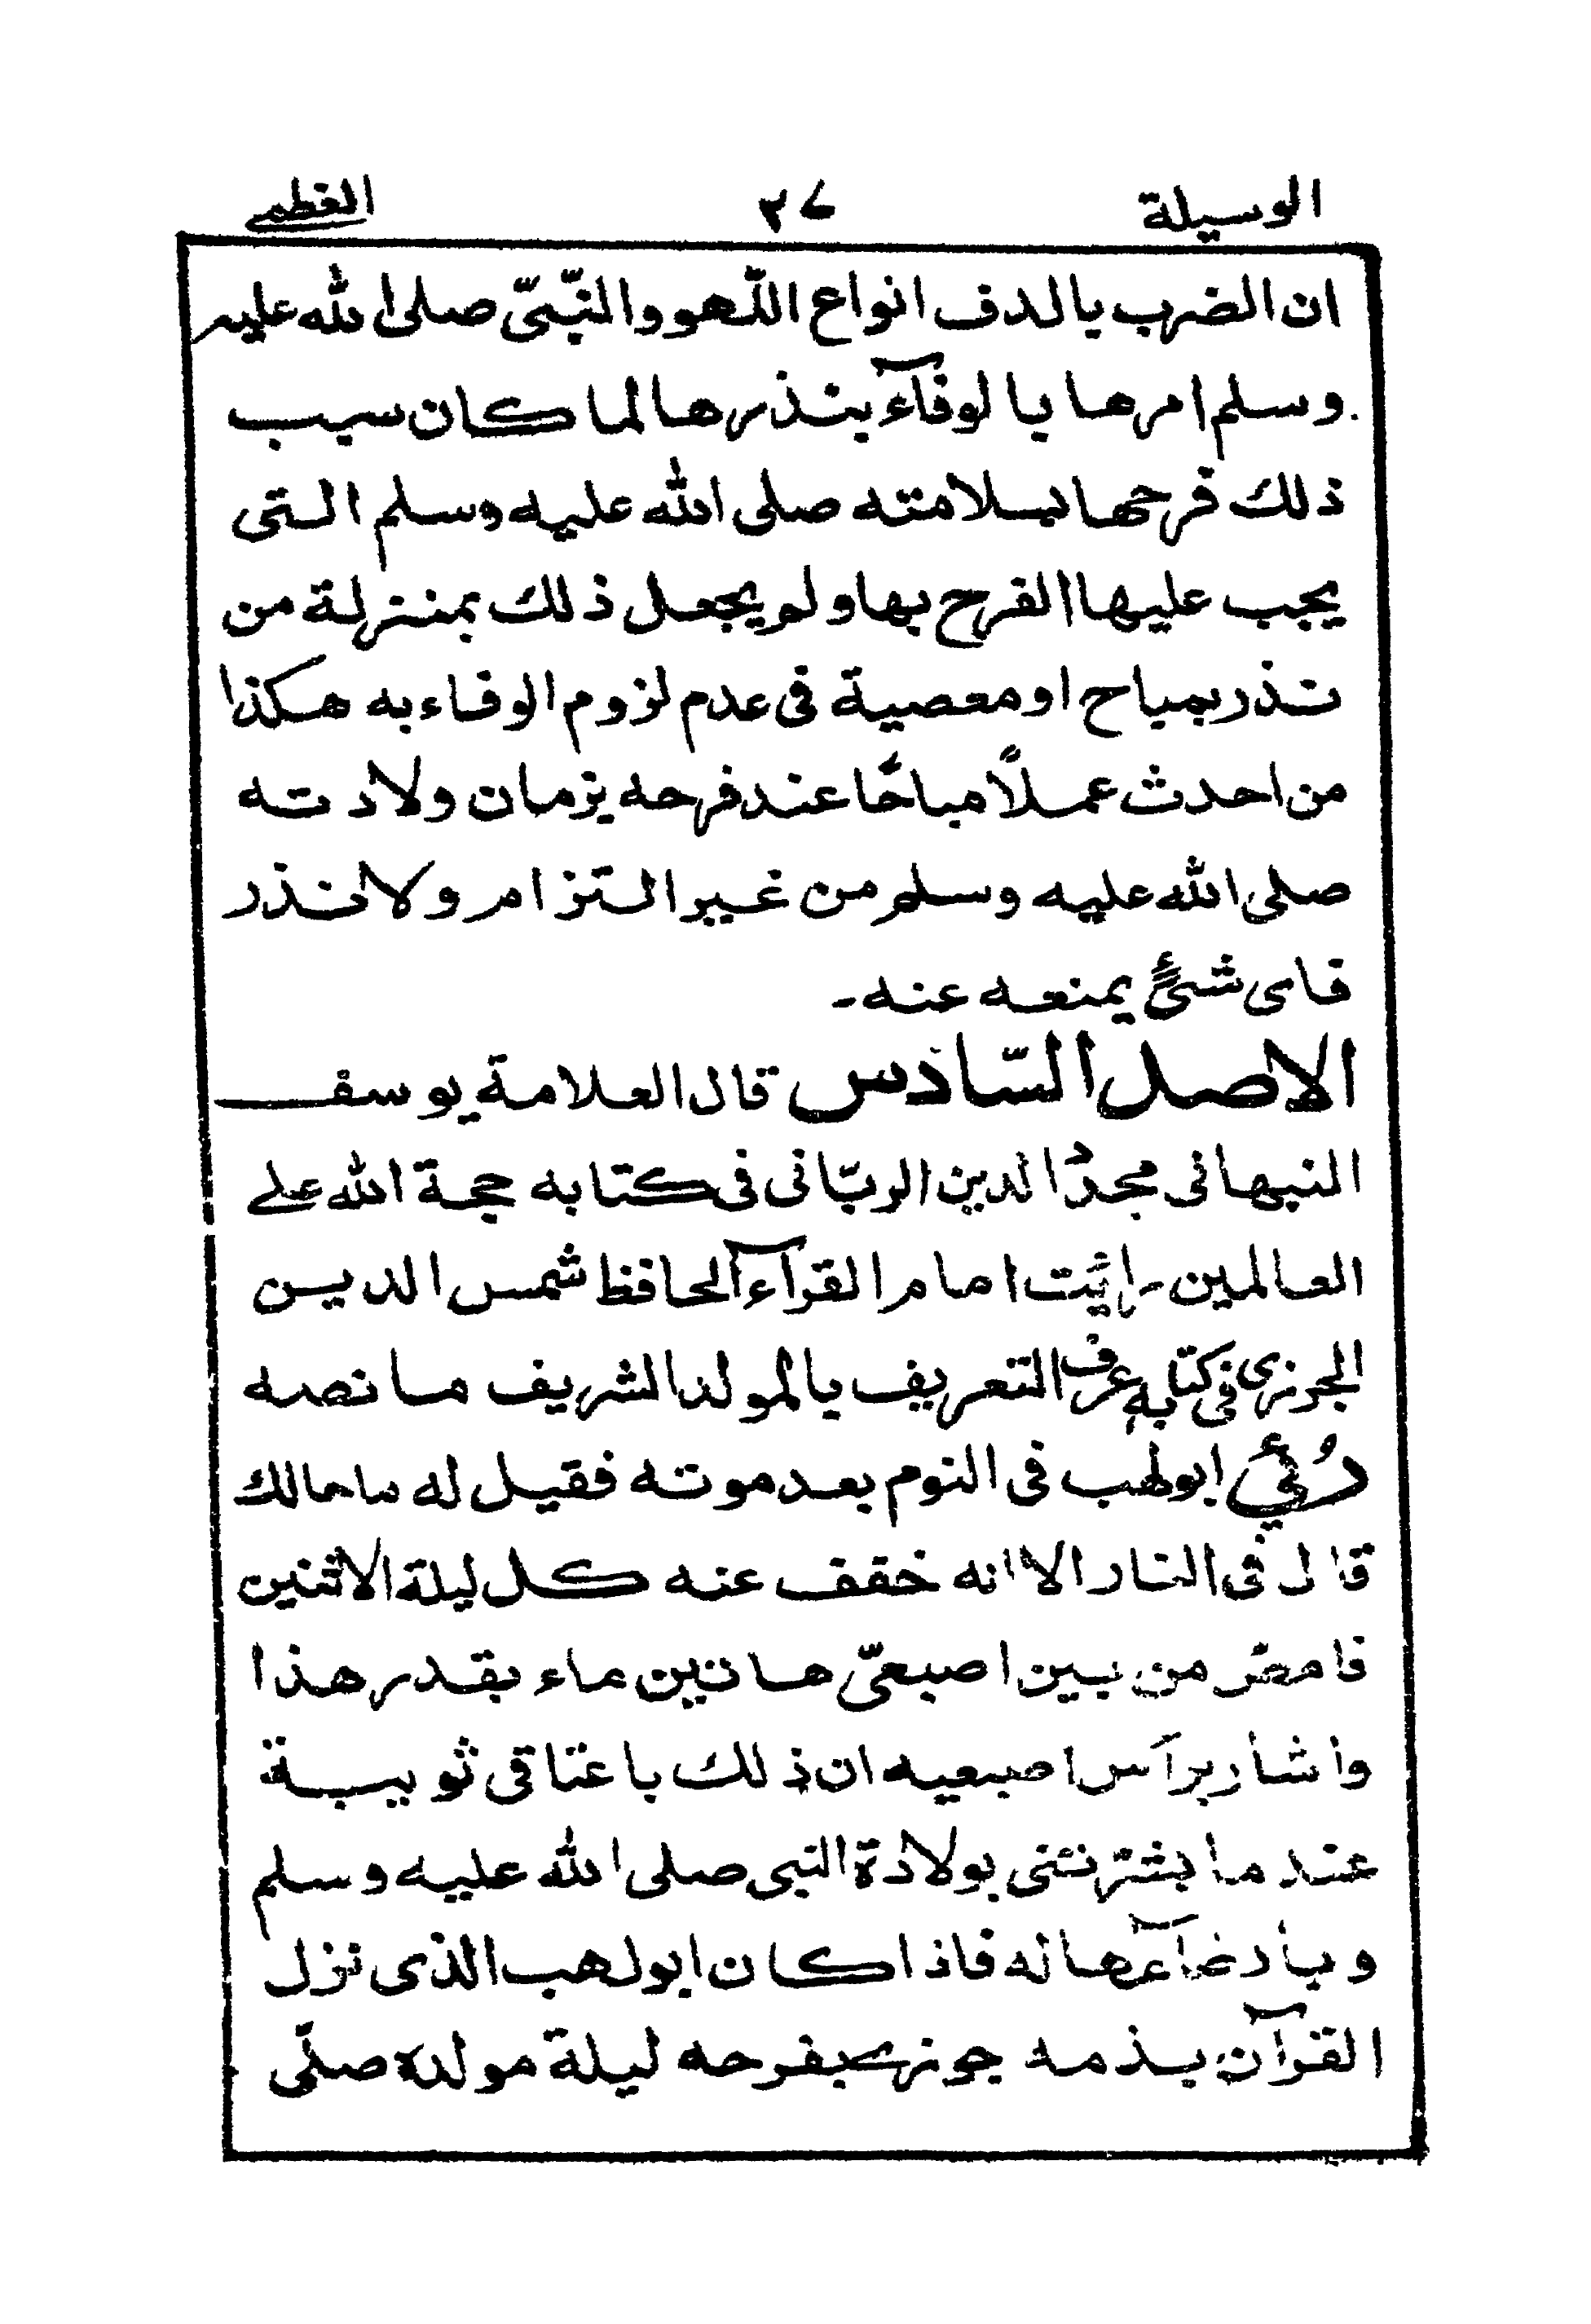 الوسيلة ٢٧ العظمى
ان الضرب بالدف انواع اللّهو والنّبيّ صلى الله عليه
وسلم امرها بالوفآء بنذرها لما كان سبب
ذلك فرحها بسلامته صلى الله عليه وسلم التى
يجب عليها الفرح بها ولم يجعل ذلك بمنزلة من
نذر بمباح او معصية فى عدم لزوم الوفاء به هكذا
من احدث عملاً مباحًا عند فرحه بزمان ولادته
صلى الله عليه وسلم من غير التزام ولا نذر
فاى شئٍ يمنعه عنه۔
الاصل السّادس قال العلامة يوسف
النبهانى مجدُ الدين الربّانى فى كتابه حجة الله على
العالمين رايُت امام القرآء الحافظ شمس الدين
الجزرى فى كتابه عرف التعريف بالمولد الشريف ما نصه
رُئي ابو لهب فى النوم بعد موته فقيل له ما حالك
قال فى النار الا انه خفف عنه كل ليلة الاثنين
فامصّ من بين اصبعيّ هاتين ماء بقدر هذا
واشار برآس اصبعيه ان ذلك باعتاقى ثويبة
عند ما بشّرتنى بولادة النبى صلى الله عليه وسلم
وبأرضآعها له فاذا كان ابو لهب الذى نزل
القرآن بذمه جوزى بفرحه ليلة مولده صلّى